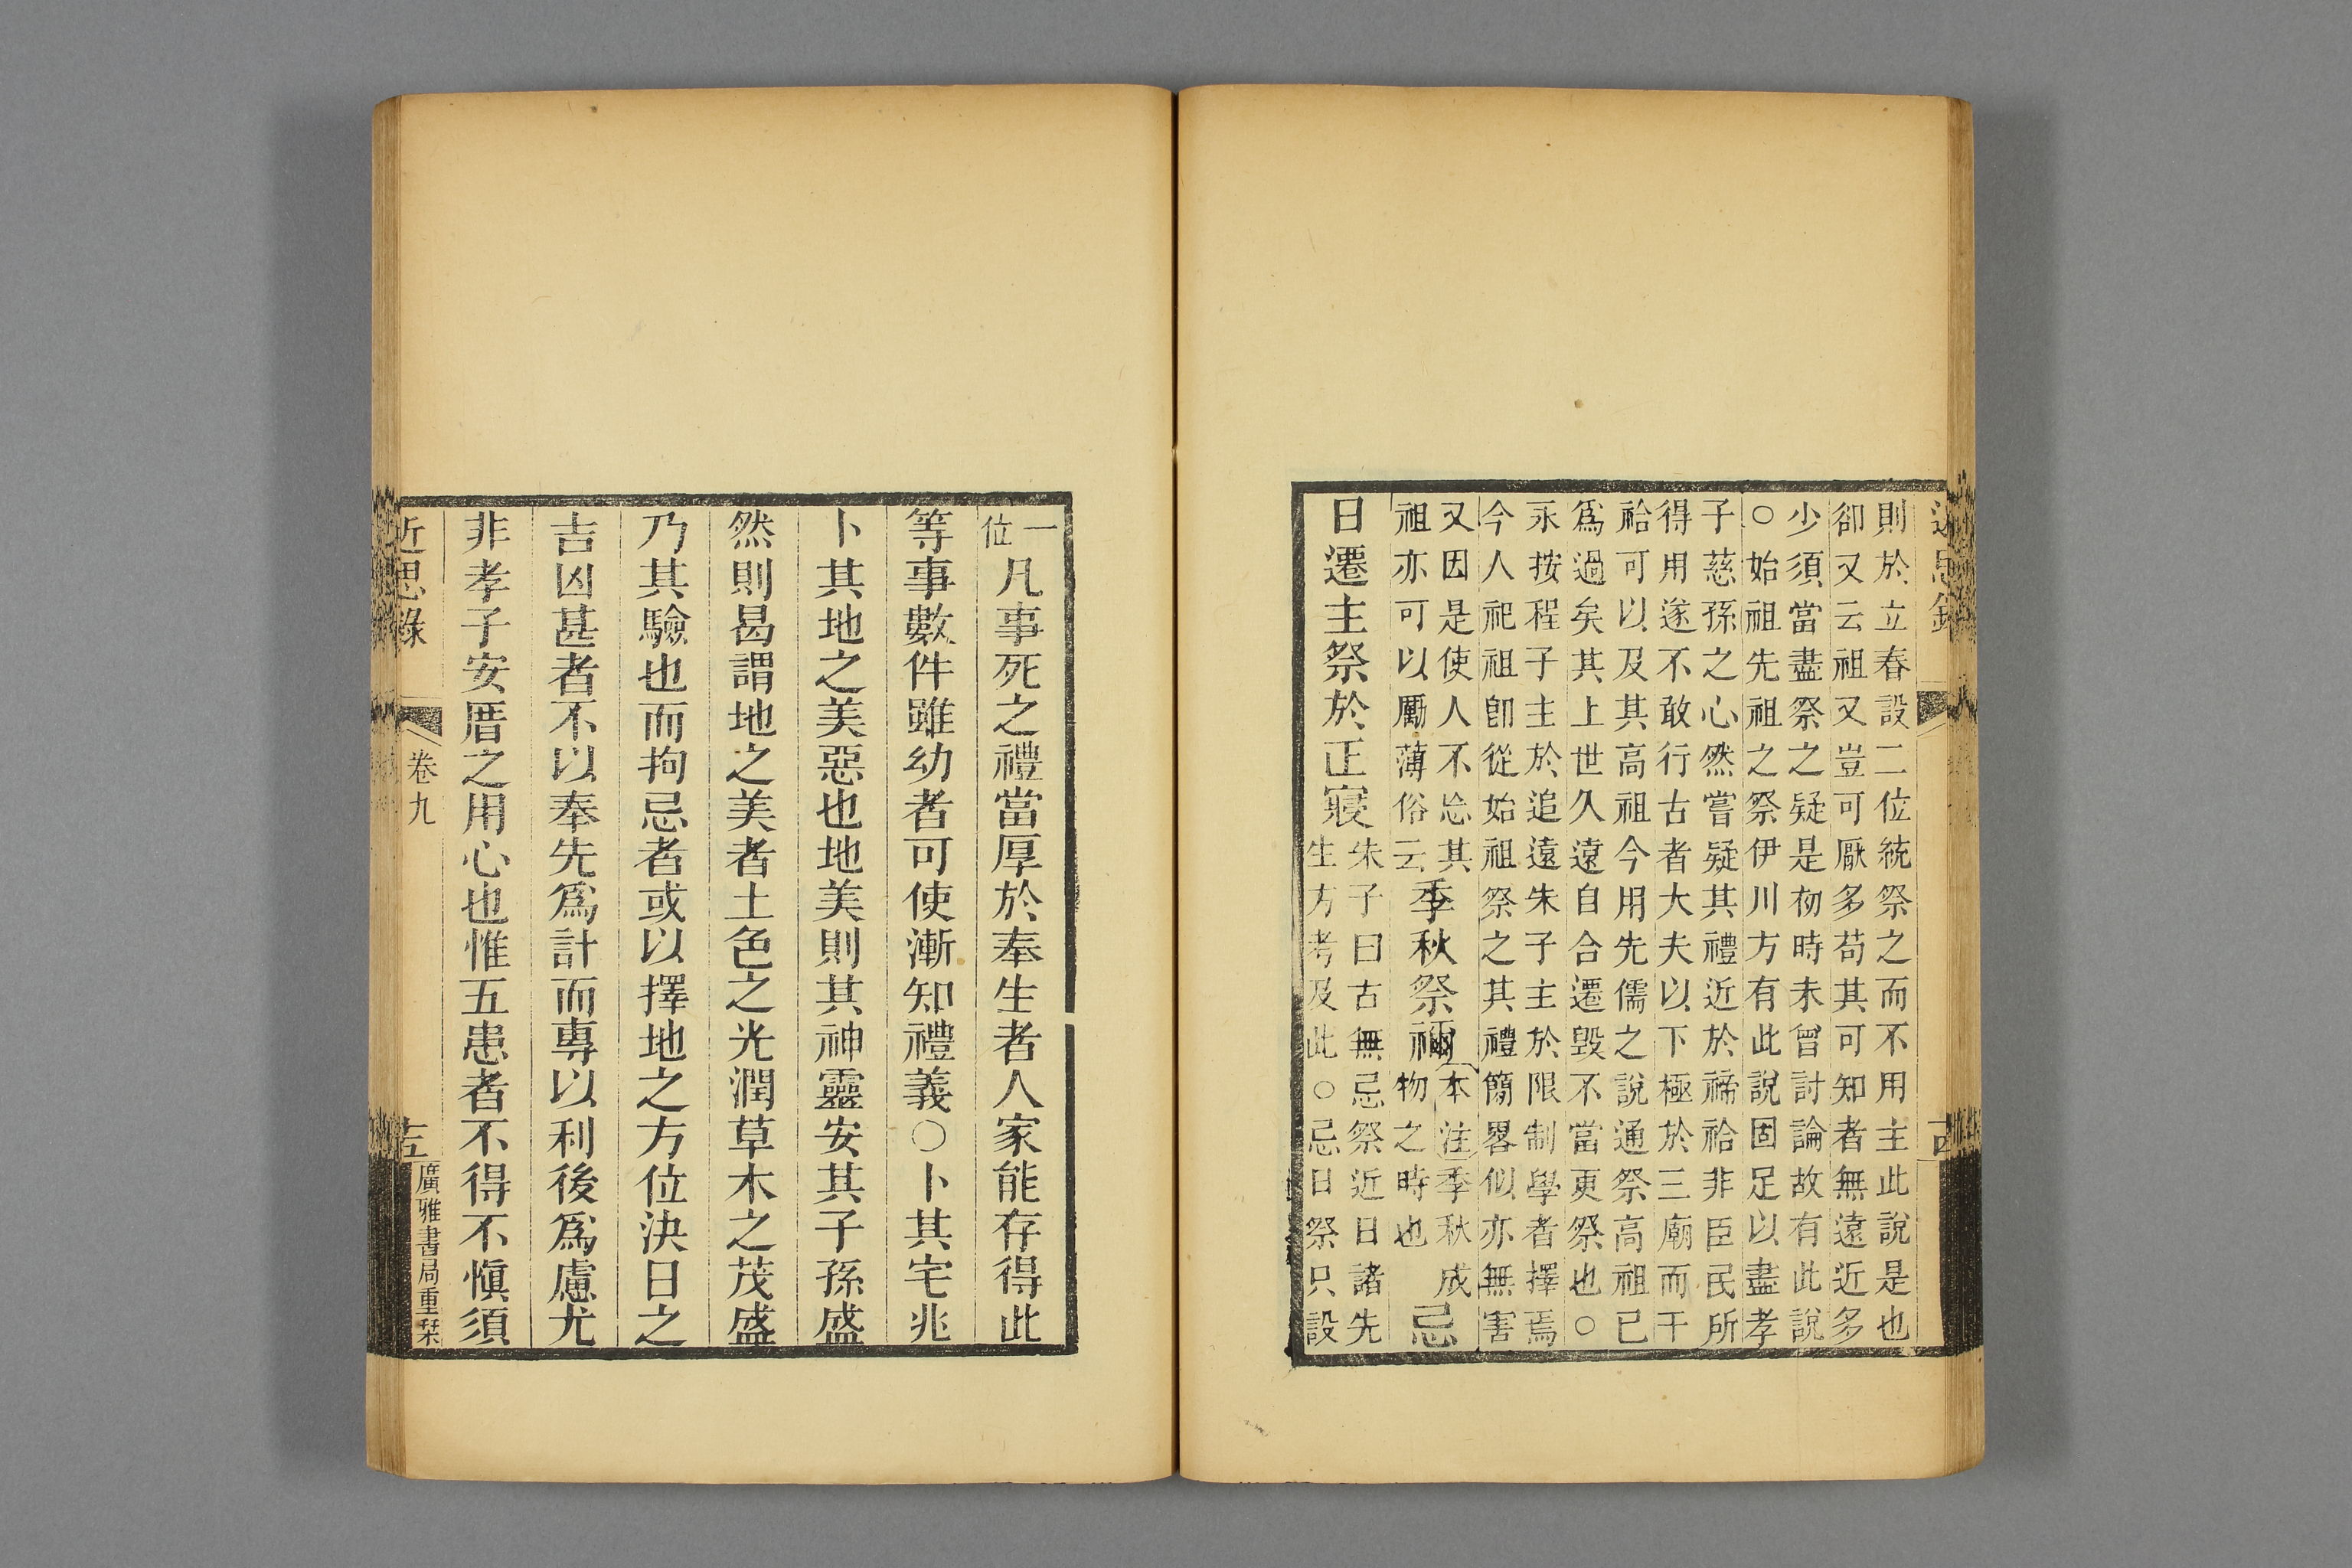 則於立春設二位統祭之而不用主此說是也
卻又云祖又豈可厭多苟其可知者無遠近多
少須當盡祭之疑是初時未曾討論故有此說
○始祖先祖之祭伊川方有此說固足以盡孝
子慈孫之心然嘗疑其禮近於禘祫非臣民所
得用遂不敢行古者大夫以下極於三廟而干
祫可以及其高祖今用先儒之說通祭高祖已
爲過矣其上世久遠自合遷毀不當更祭也○
永按程子主於追遠朱子主於限制學者擇焉
今人祀祖卽從始祖祭之其禮簡畧似亦無害
又因是使人不忘其
祖亦可以厲薄俗云
季秋祭禰
本注季秋成
物之時也
忌
日遷主祭於正寢
朱子曰古無忌祭近日諸先
生方考及此○忌日祭只設
一
位
凡事死之禮當厚於奉生者人家能存得此
等事數件雖幼者可使漸知禮義○卜其宅兆
卜其地之美惡也地美則其神靈安其子孫盛
然則曷謂地之美者土色之光潤草木之茂盛
乃其驗也而拘忌者或以擇地之方位決日之
吉凶甚者不以奉先爲計而專以利後爲慮尤
非孝子安厝之用心也惟五患者不得不愼須
近思錄
卷九
廣雅書局重栞